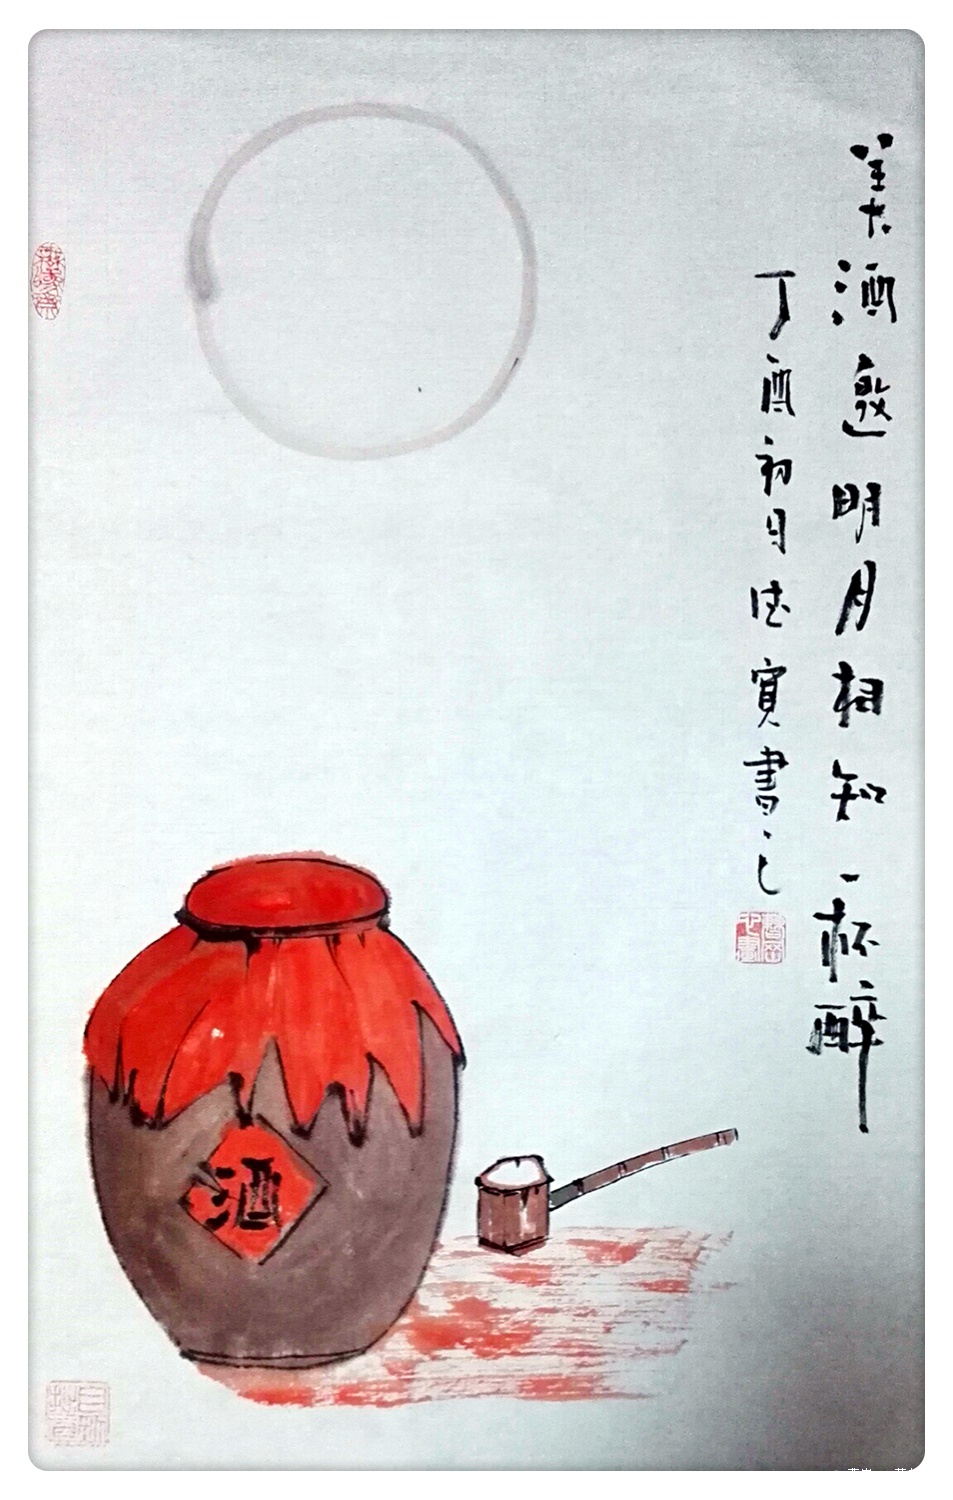 美酒邀明月相知一杯醉
丁酉初月德寳書之
酒